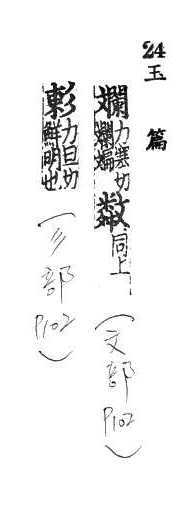 24 玉篇
斕力寒切斕斒 同上
(文部 P102)
力旦切鮮明也
(彡部 P102)